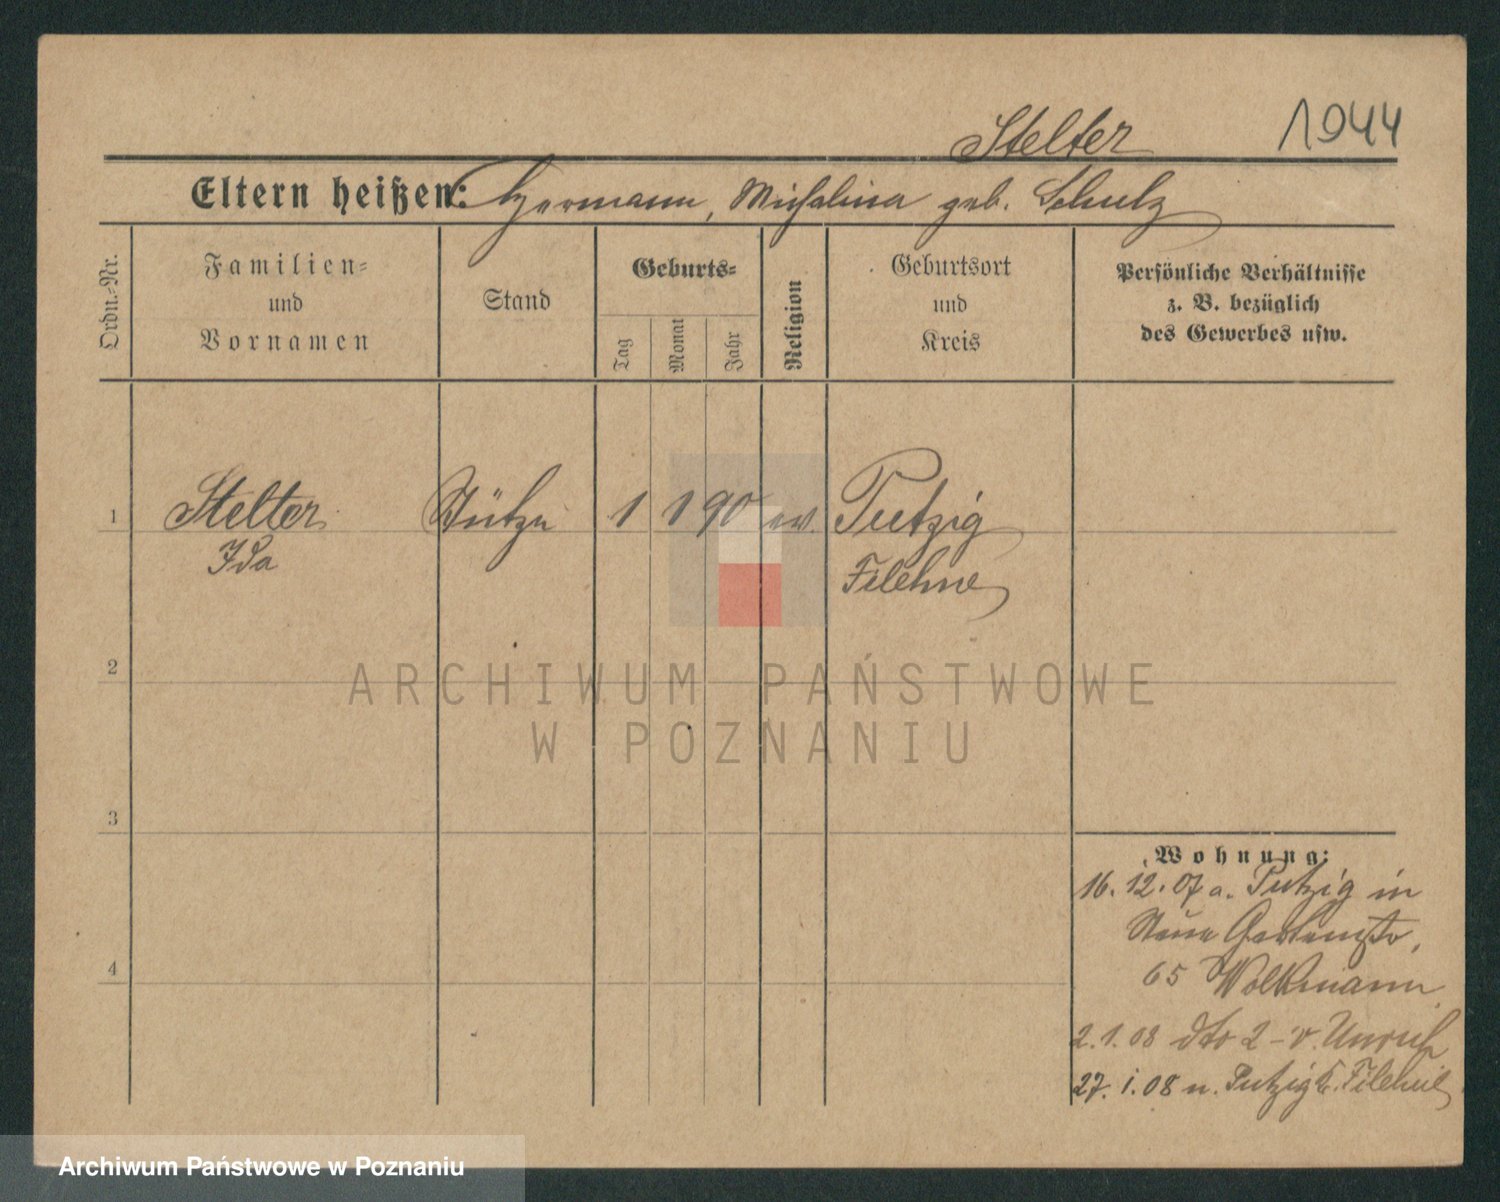 Stelter 1944
Eltern heißen: Hermann, Michalina geb. Schulz
Ordn.-Nr.
Familien-
und
Vornamen
Stand
Geburts-
Tag
Monat
Jahr
Religion
Geburtsort
und
Kreis
Persönliche Verhältnisse
z. B. bezüglich
des Gewerbes usw.
1 Stelter Stütze 1 1 90 ev. Putzig
Ida Filehne
2
ARCHIWUM PAŃSTWOWE
W POZNANIU
3
Wohnung:
16. 12. 07 a. Putzig in
Gartenstr,
4
65 Wolkmann
2. 1. 08 dto 2 - v. Unruh
27. 1. 08 n. Putzig K. Filehne
Archiwum Państwowe w Poznaniu